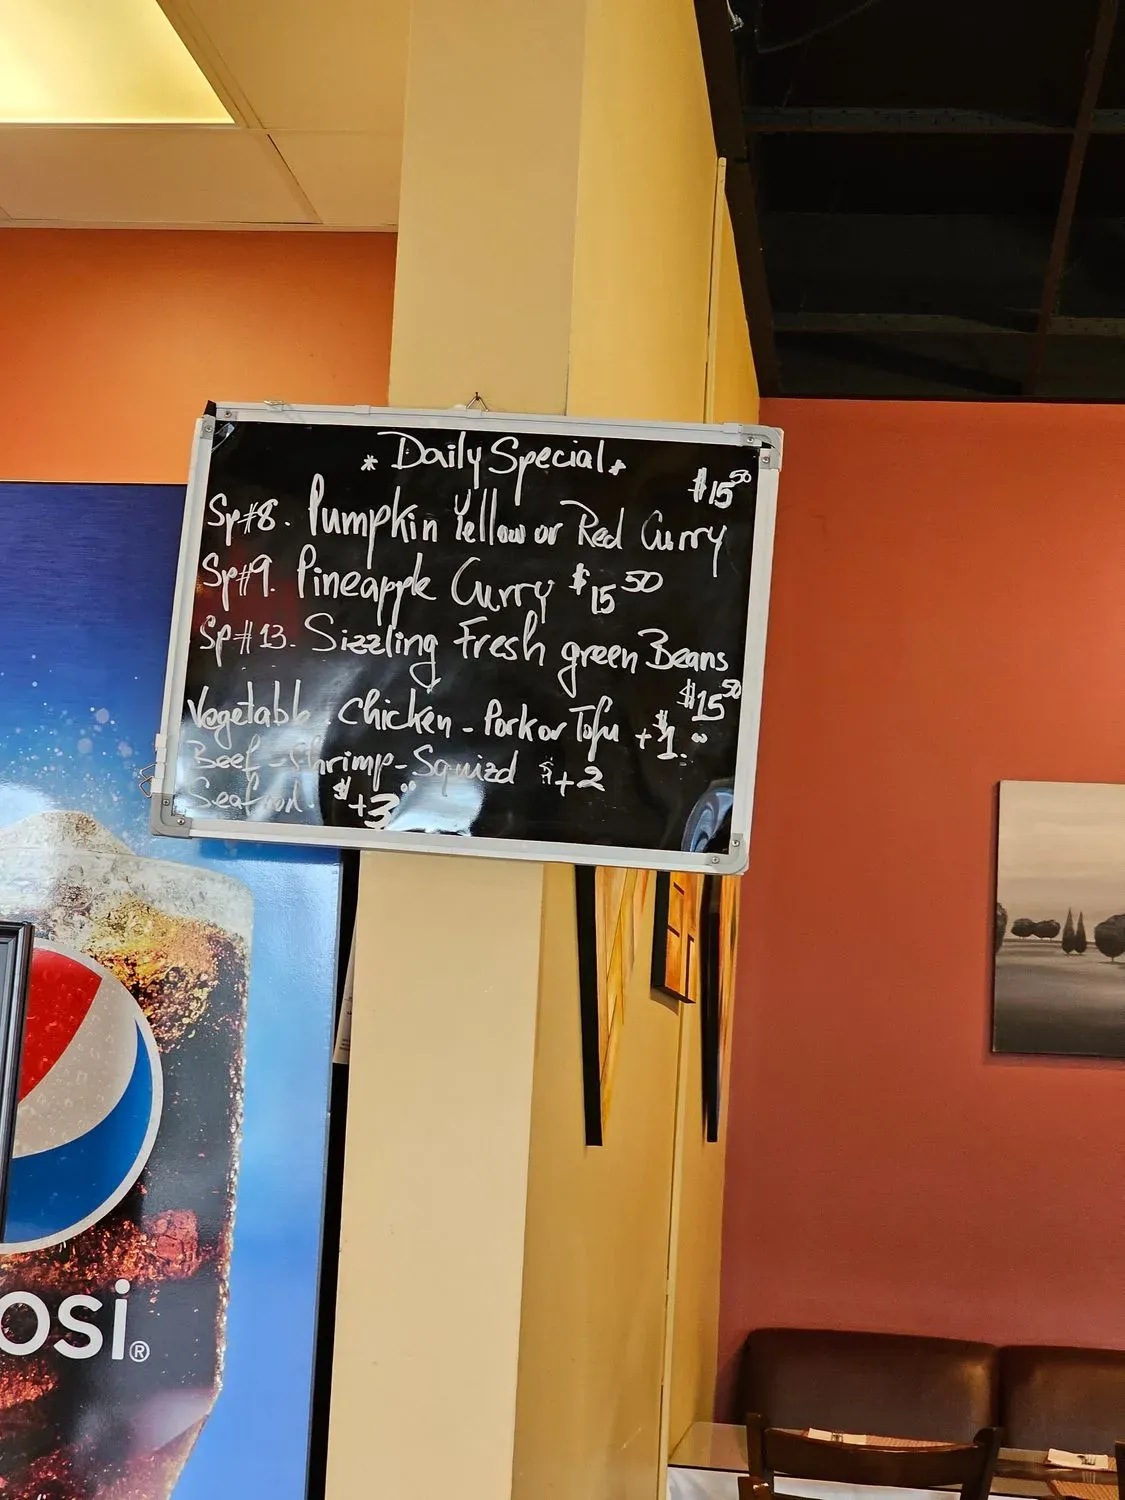 * Daily Special *
$15.50
Sp#8. Pumpkin Yellow or Red Curry
Sp#9. Pineapple Curry $15.50
Sp#13. Sizzling Fresh green Beans
$15.50
Vegetable. Chicken - Pork or Tofu +$1.00
Beef - Shrimp - Squizd $+2
Seafood. $+3.00
osi®